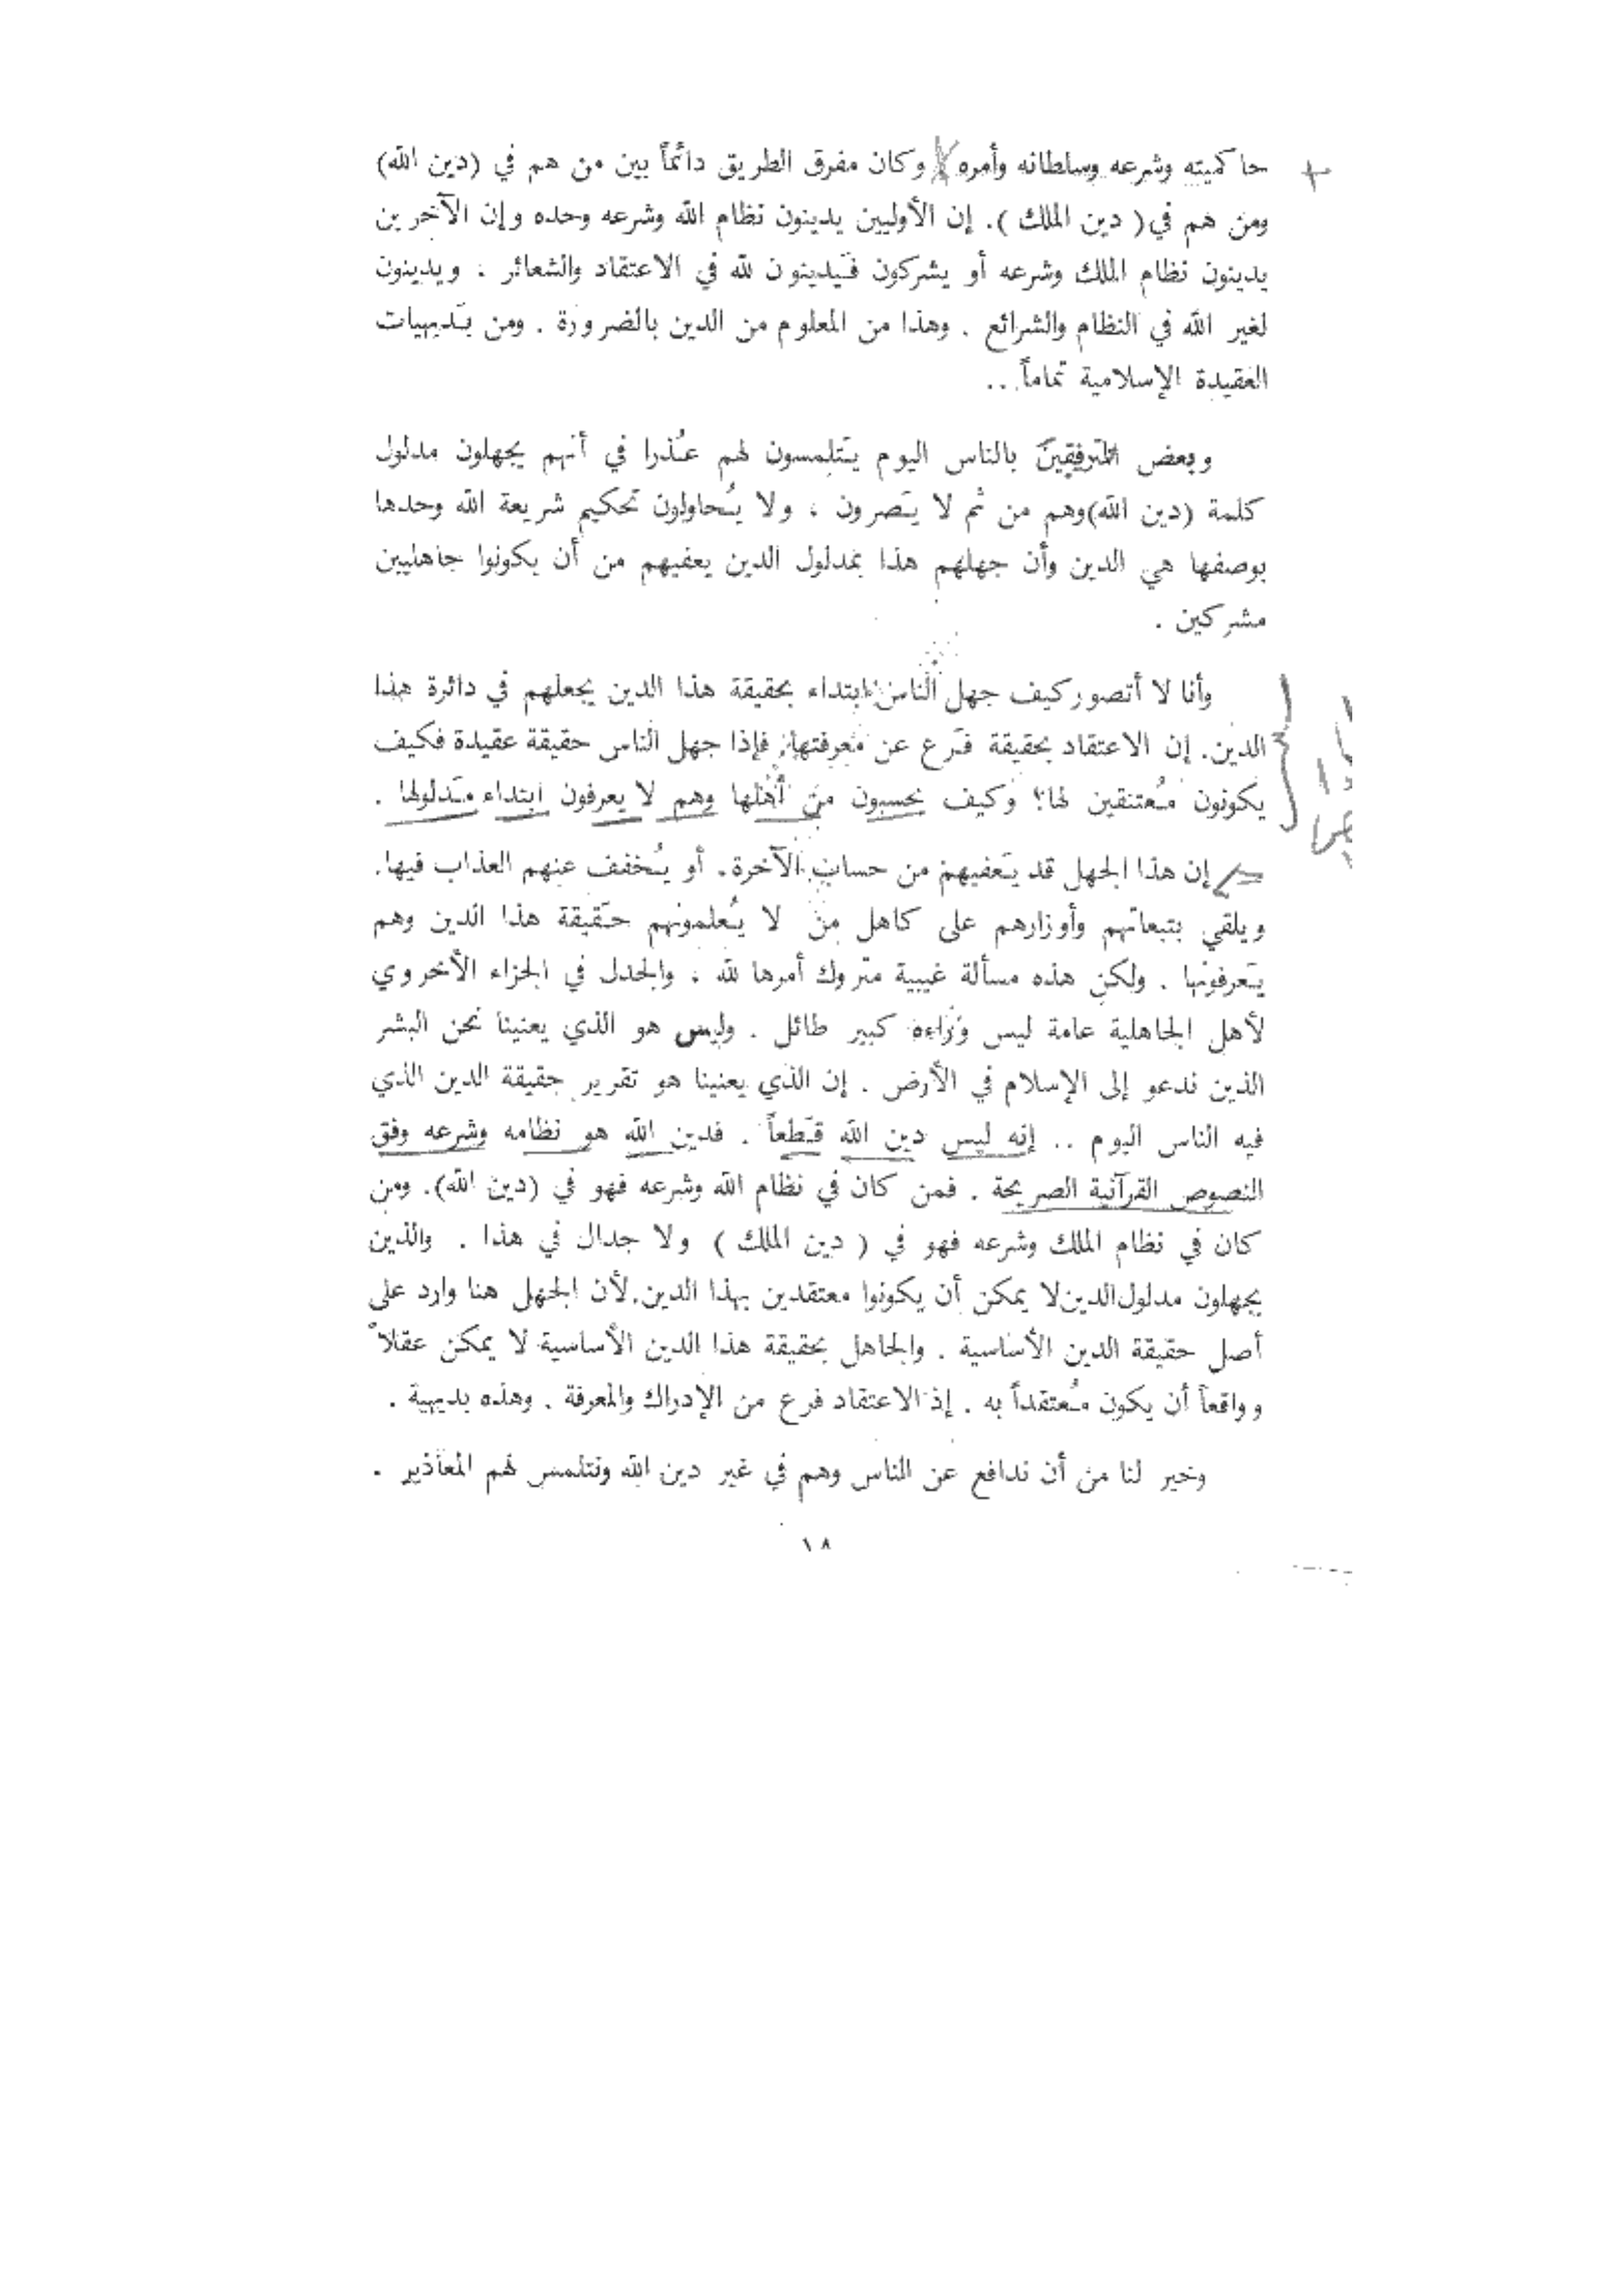 حاكميته وشرعه وسلطانه وأمره وكان مفرق الطريق دائماً بين من هم في (دين الله)
ومن هم في ( دين الملك ). إن الأوليين يدينون نظام الله وشرعه وحده وإن الآخرين
يدينون نظام الملك وشرعه أو يشركون فيَدينون لله في الاعتقاد والشعائر ، ويدينون
لغير الله في النظام والشرائع . وهذا من المعلوم من الدين بالضرورة . ومن بَديهيات
العقيدة الإسلامية تماماً ..
وبعض المترفقين بالناس اليوم يَتلمسون لهم عُذرا في أنهم يجهلون مدلول
كلمة (دين الله) وهم من ثم لا يَصرون ، ولا يُحاولون تحكيم شريعة الله وحدها
بوصفها هي الدين وأن جهلهم هذا بمدلول الدين يعفيهم من أن يكونوا جاهليين
مشركين .
وأنا لا أتصور كيف جهل الناس ابتداء بحقيقة هذا الدين يجعلهم في دائرة هذا
الدين. إن الاعتقاد بحقيقة فَرع عن معرفتها، فإذا جهل الناس حقيقة عقيدة فكيف
يكونون مُعتنقين لها؟ وكيف يحسبون من أهلها وهم لا يعرفون ابتداء مَدلولها .
إن هذا الجهل قد يَعفيهم من حساب الآخرة. أو يُخفف عنهم العذاب فيها.
ويلقي بتبعاتهم وأوزارهم على كاهل من لا يُعلمونهم حَقيقة هذا الدين وهم
يَعرفونها . ولكن هذه مسألة غيبية متروك أمرها لله ، والجدل في الجزاء الأخروي
لأهل الجاهلية عامة ليس وَراءه كبير طائل . وليس هو الذي يعنينا نحن البشر
الذين ندعو إلى الإسلام في الأرض . إن الذي يعنينا هو تقرير حقيقة الدين الذي
فيه الناس اليوم .. إنه ليس دين الله قَطعاً . فدين الله هو نظامه وشرعه وفق
النصوص القرآنية الصريحة . فمن كان في نظام الله وشرعه فهو في (دين الله). ومن
كان في نظام الملك وشرعه فهو في ( دين الملك ) ولا جدال في هذا . والذين
يجهلون مدلول الدين لا يمكن أن يكونوا معتقدين بهذا الدين. لأن الجهل هنا وارد على
أصل حقيقة الدين الأساسية . والجاهل بحقيقة هذا الدين الأساسية لا يمكن عقلاً
وواقعاً أن يكون مُعتقداً به . إذ الاعتقاد فرع من الإدراك والمعرفة . وهذه بديهية .
وخير لنا من أن ندافع عن الناس وهم في غير دين الله ونتلمس لهم المعاذير .
١٨